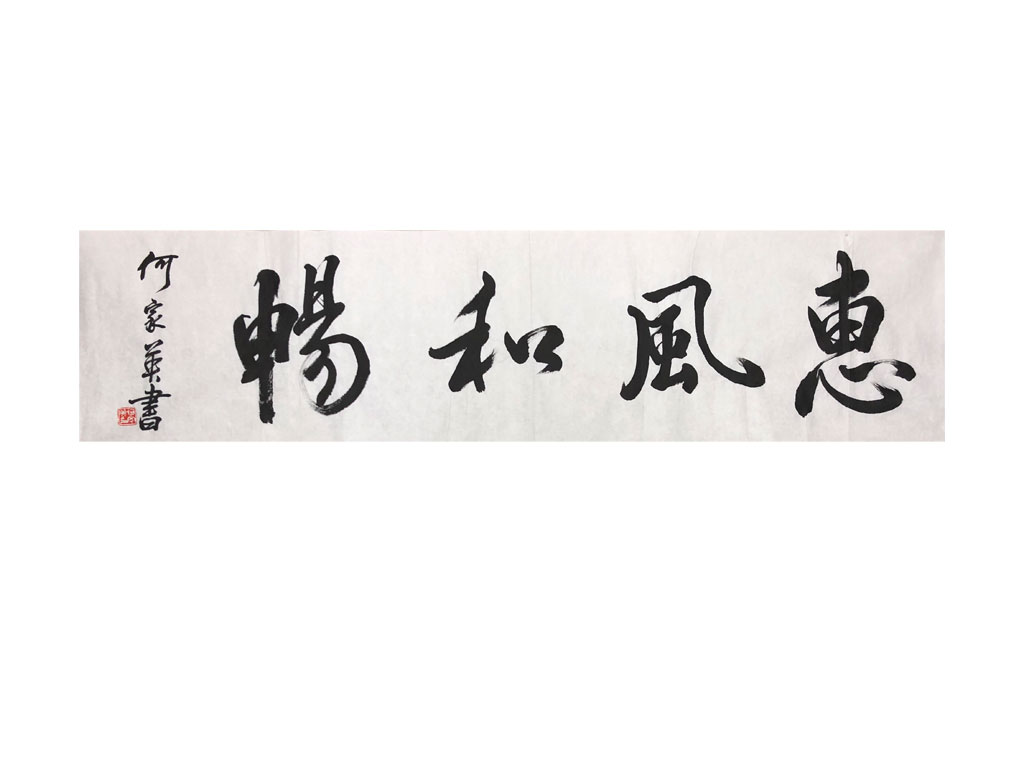 惠風和暢
何家英書